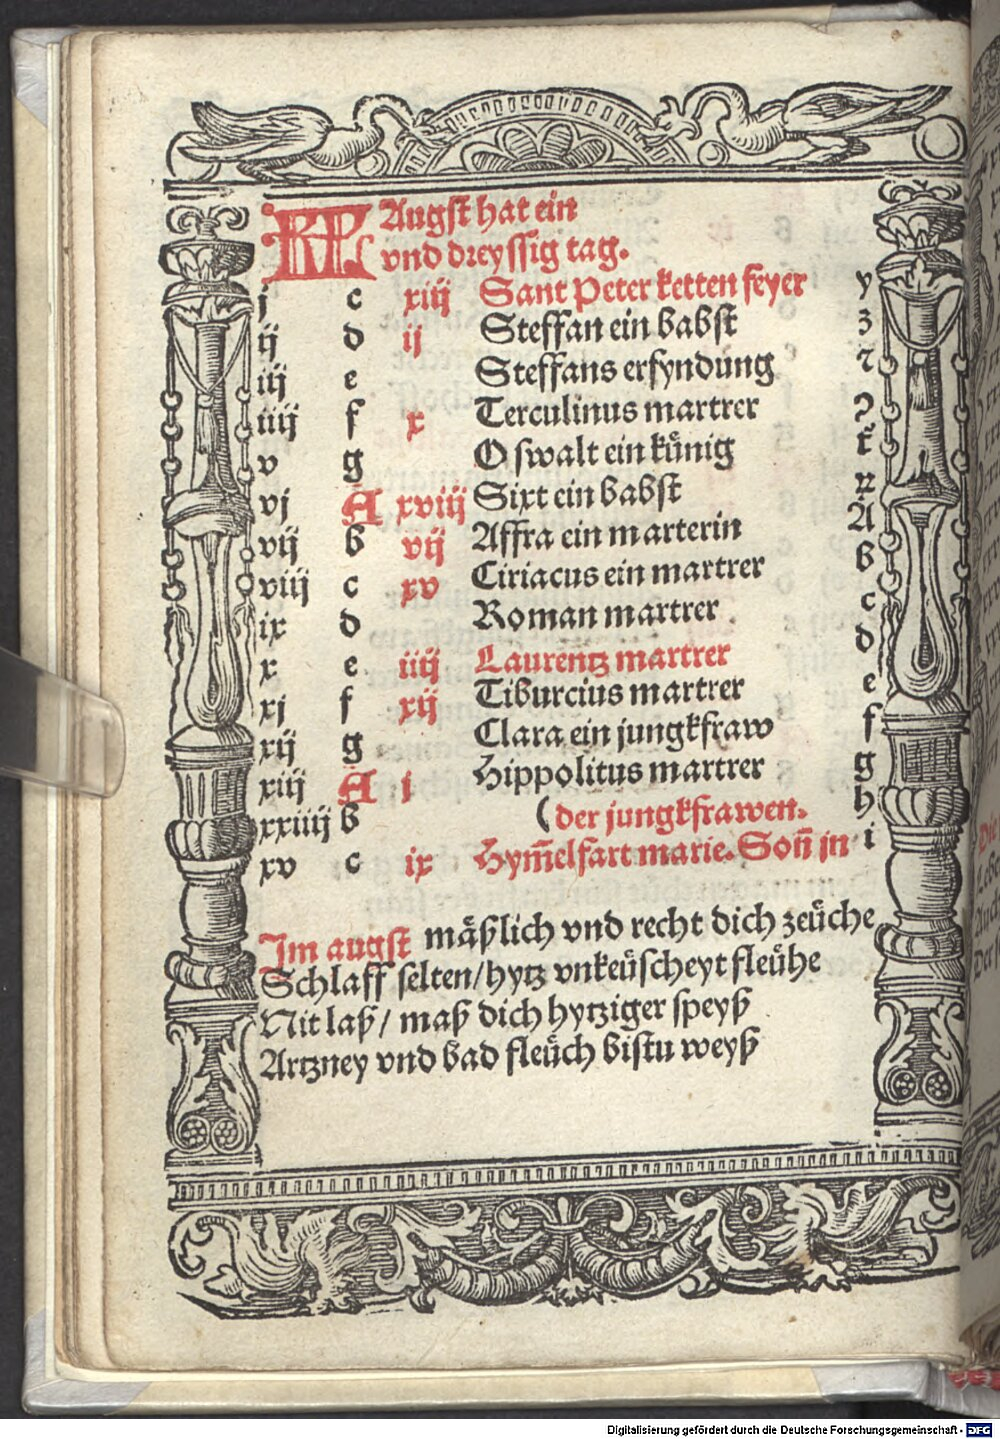 KL Augst hat ein
vnd dreyssig tag.
j c xiij Sant Peter ketten feyer y
ij d ij Steffan ein babst z
iij e Steffans erfyndung ⁊
iiij f x Terculinus martrer ꝯ
v g Oswalt ein künig t̄
vj A xviij Sixt ein babst
vij b vij Affra ein marterin A
viij c xv Ciriacus ein martrer b
ix d Roman martrer c
x e iiij Laurentz martrer d
xj f xij Tiburcius martrer e
xij g Clara ein jungkfraw f
xiij A j Hippolitus martrer g
xxiiij b (der jungkfrawen. h
xv c ix Hym̄elfart marie. Son̄ in i
Im augst mäßlich vnd recht dich zeüche
Schlaff selten/hytz vnkeüscheyt fleühe
Nit laß/ maß dich hytziger speyß
Artzney vnd bad fleüch bistu weyß
Digitalisierung gefördert durch die Deutsche Forschungsgemeinschaft - DFG